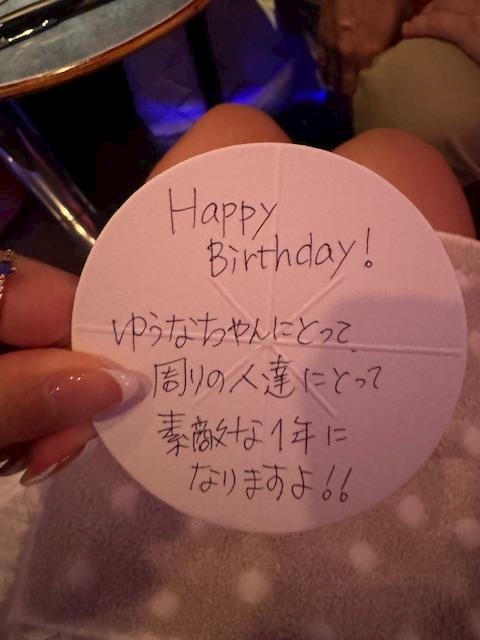 Happy
Birthday!
ゆうなちゃんにとって
周りの人達にとって
素敵な1年に
なりますよ!!